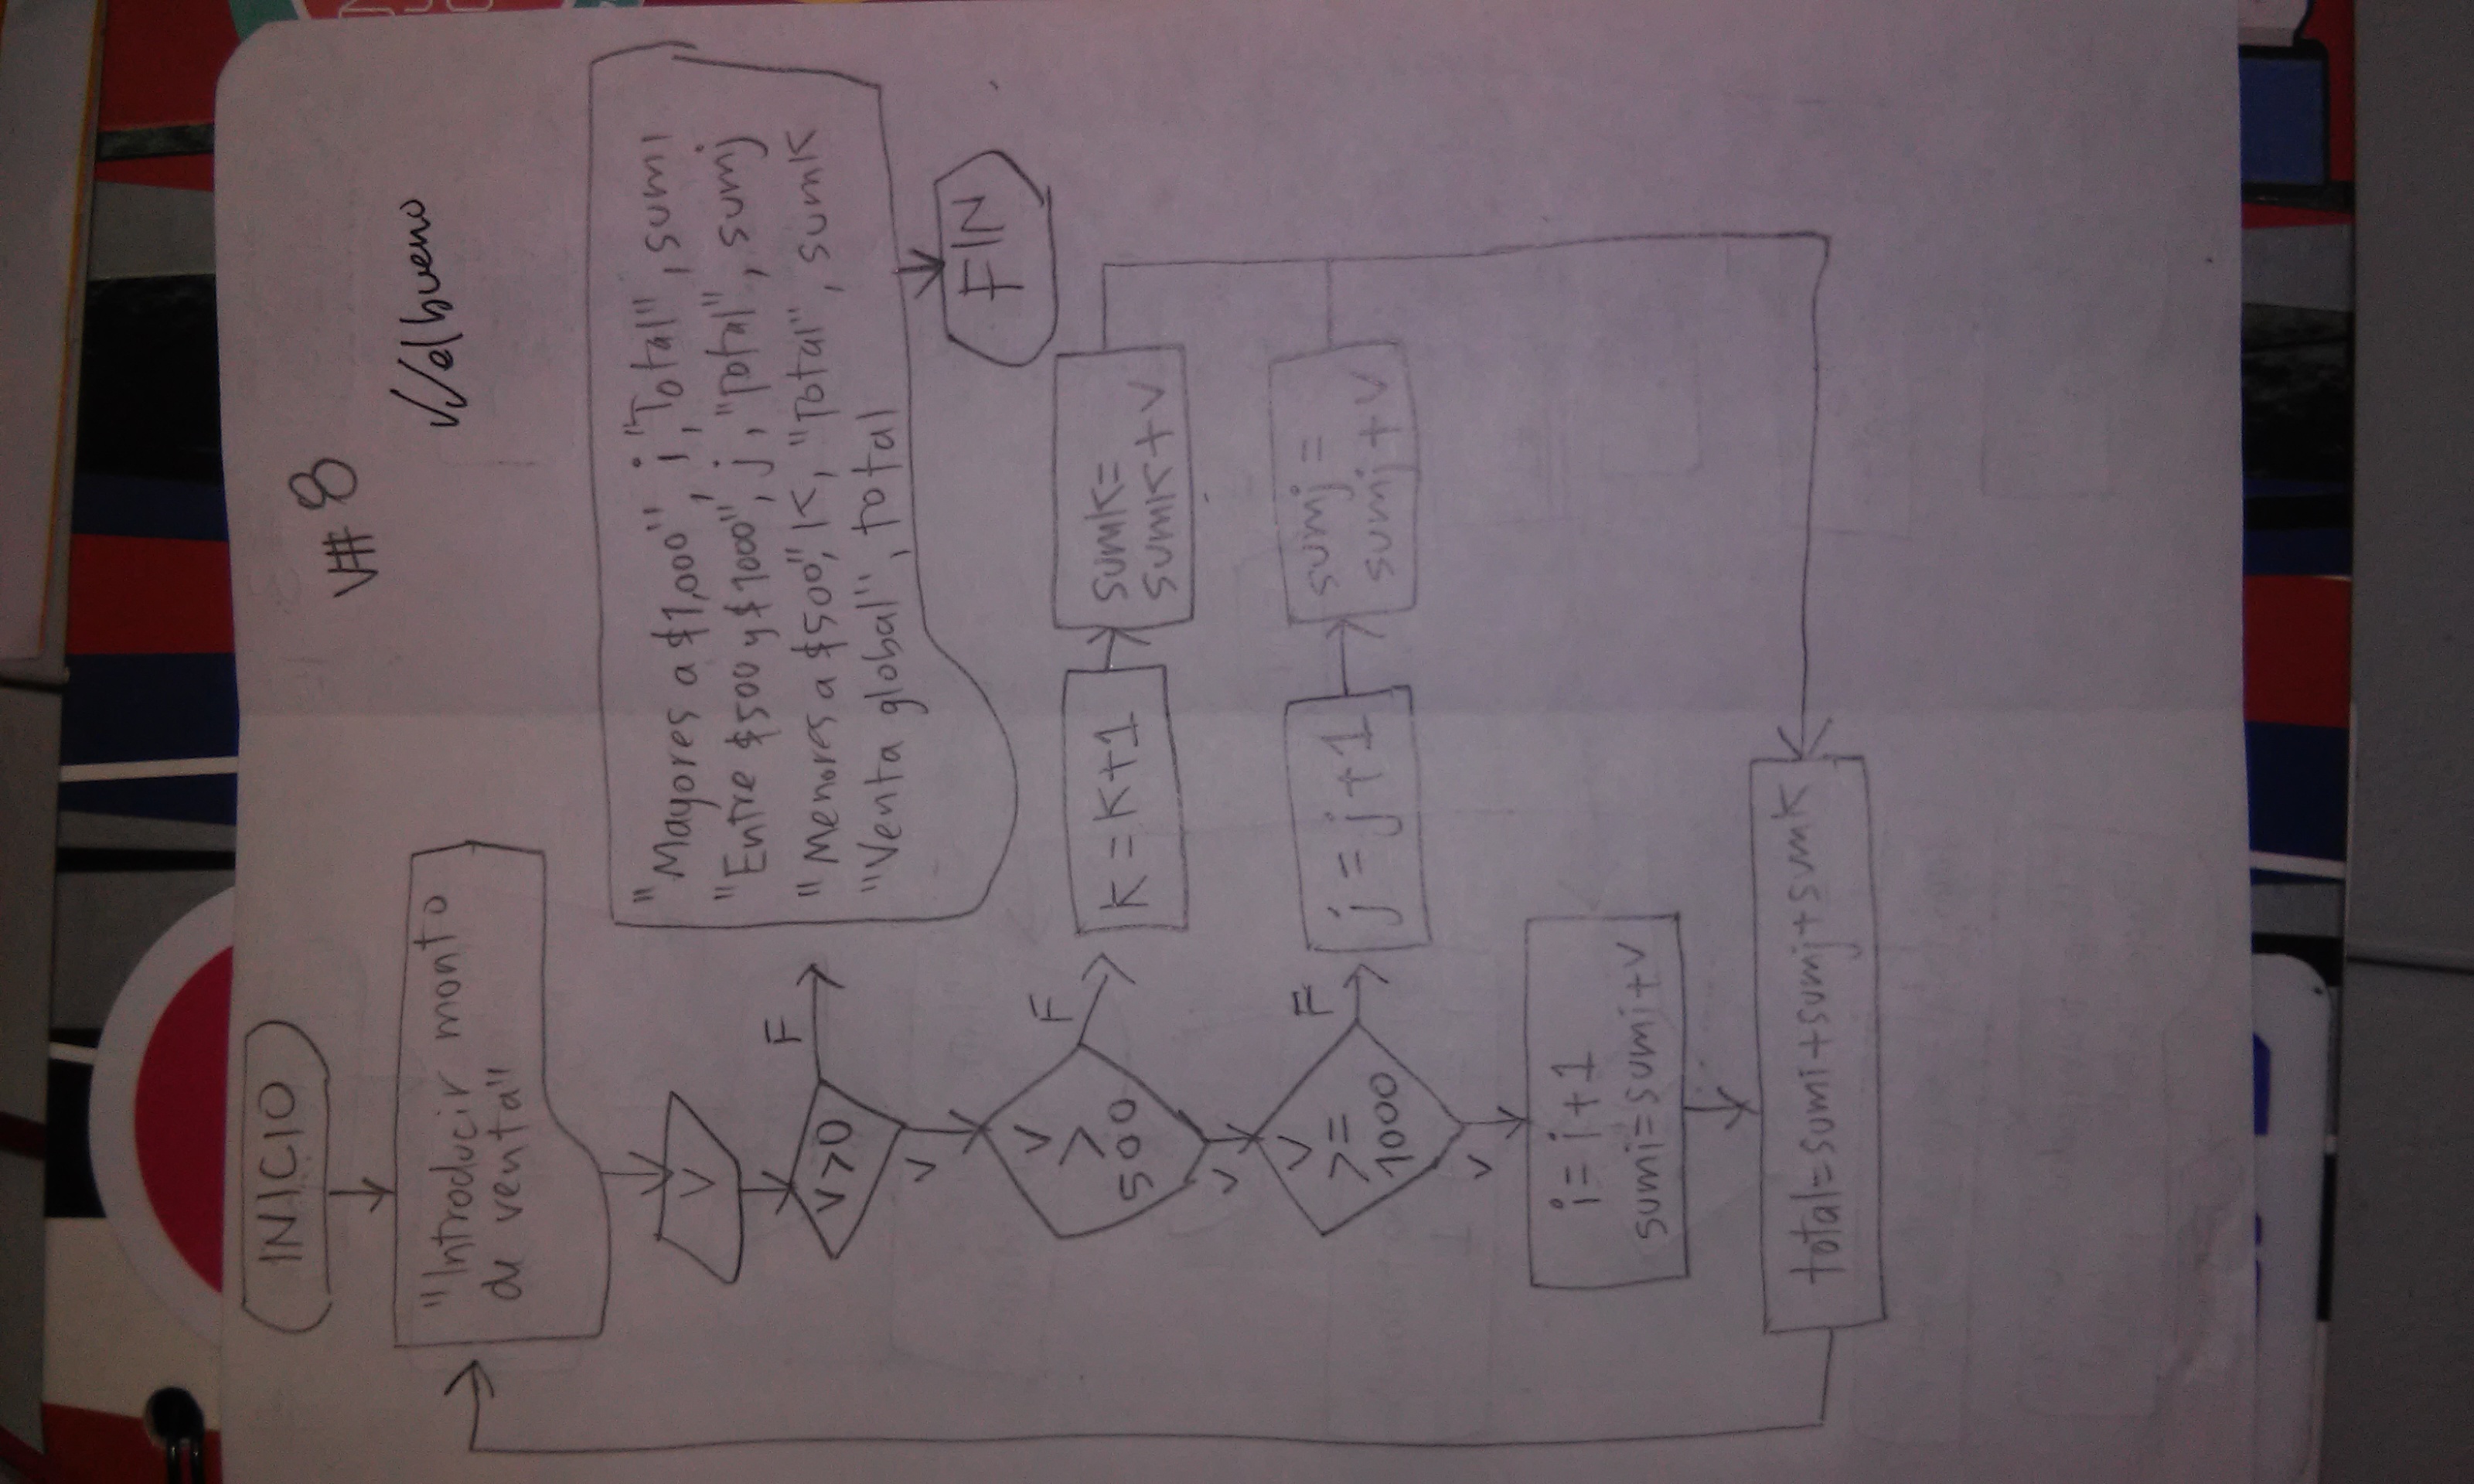 INICIO
V# 8
el bueno
"Introducir monto
de venta"
V
V>0
F
V
"Mayores a $1,000", i, "Total", sumi
"Entre $500 y $1000", j, "Total", sumj
"Menores a $500", K, "Total", sumK
"Venta global", total
FIN
V
>
500
F
V
K=K+1
sumK=
sumK+V
V
>=
1000
F
V
j=j+1
sumj=
sumj+V
i=i+1
sumi=sumi+V
total=sumi+sumj+sumK